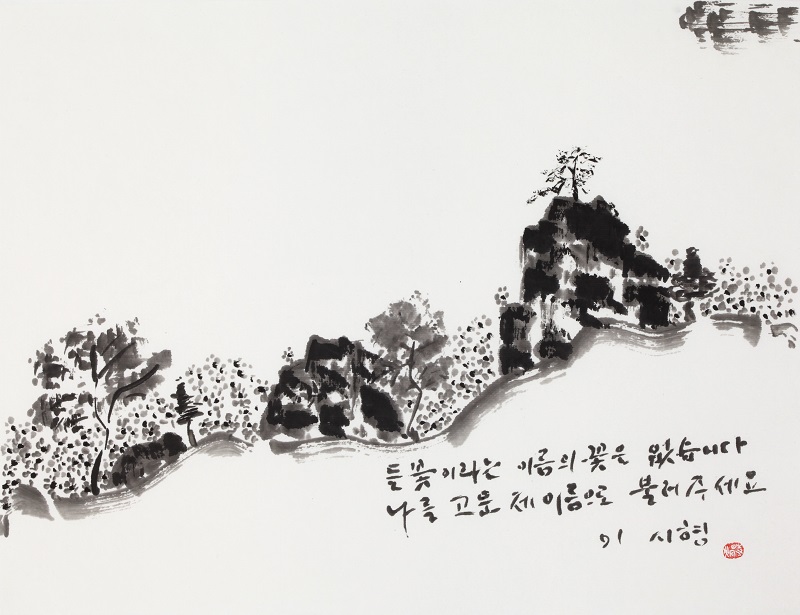 들꽃이라는 이름의 꽃은 없습니다
나를 고운 제 이름으로 불러주세요
이 시형